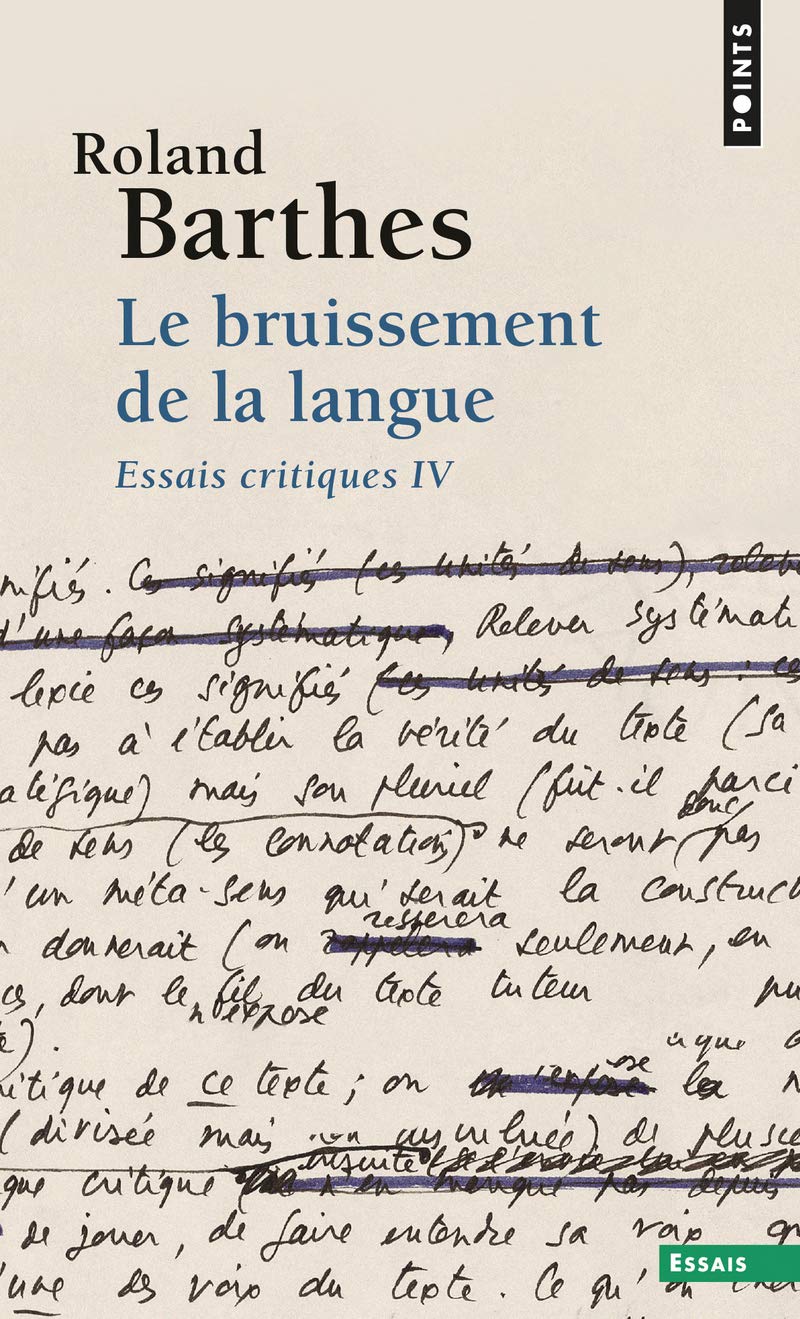 POINTS
Roland
Barthes
Le bruissement
de la langue
Essais critiques IV
nifiés. Ces signifiés (ces unités de sens), relev
d'une façon systématique, Relever systémati
lexie ces signifiés (ces unités de sens : ces
pas à établir la vérité du texte (sa
atégique) mais son pluriel (fût-il parci
donc
de sens (les connotations) ne seront pas
'un méta-sens qu'serait la construct
resserera
donnerait (on rappelera seulement, en
ces, dont le fil du texte tuteur pu
n'expose
que
itique de ce texte ; on la
(divisée mais non de plusie
ensuite
que critique n'en manque pas depuis
de jouer, de faire entendre sa voix
'une des voix du texte. Ce qu'on cher
ESSAIS